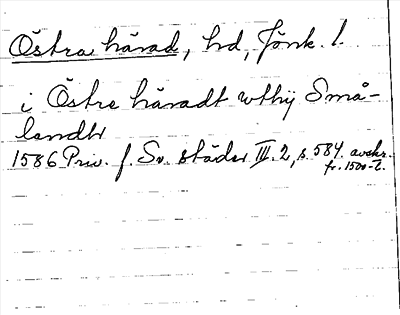 Östra härad, hd, Jönk. l.
i Östre häradt wthij Små-
landh
1586 Priv. f. Sv. städer III. 2, s. 584. avskr.
fr. 1500-t.